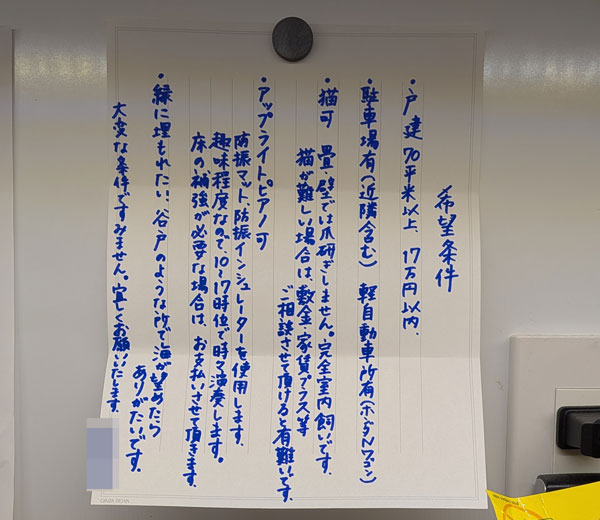 希望条件
・戸建70平米以上、17万円以内、
・駐車場有(近隣含む) 軽自動車所有(ホンダNワゴン)
・猫可 畳・壁では爪研ぎしません。完全室内飼いです。
猫が難しい場合は、敷金・家賃プラス等
ご相談させて頂けると有難いです。
・アップライトピアノ可
防振マット、防振インシュレーターを使用します。
趣味程度なので、10〜17時位で時々演奏します。
床の補強が必要な場合は、お支払いさせて頂きます。
・緑に埋もれたい、谷戸のような所で海が望めたら
ありがたいです。
大変な条件ですみません。宜しくお願いします。